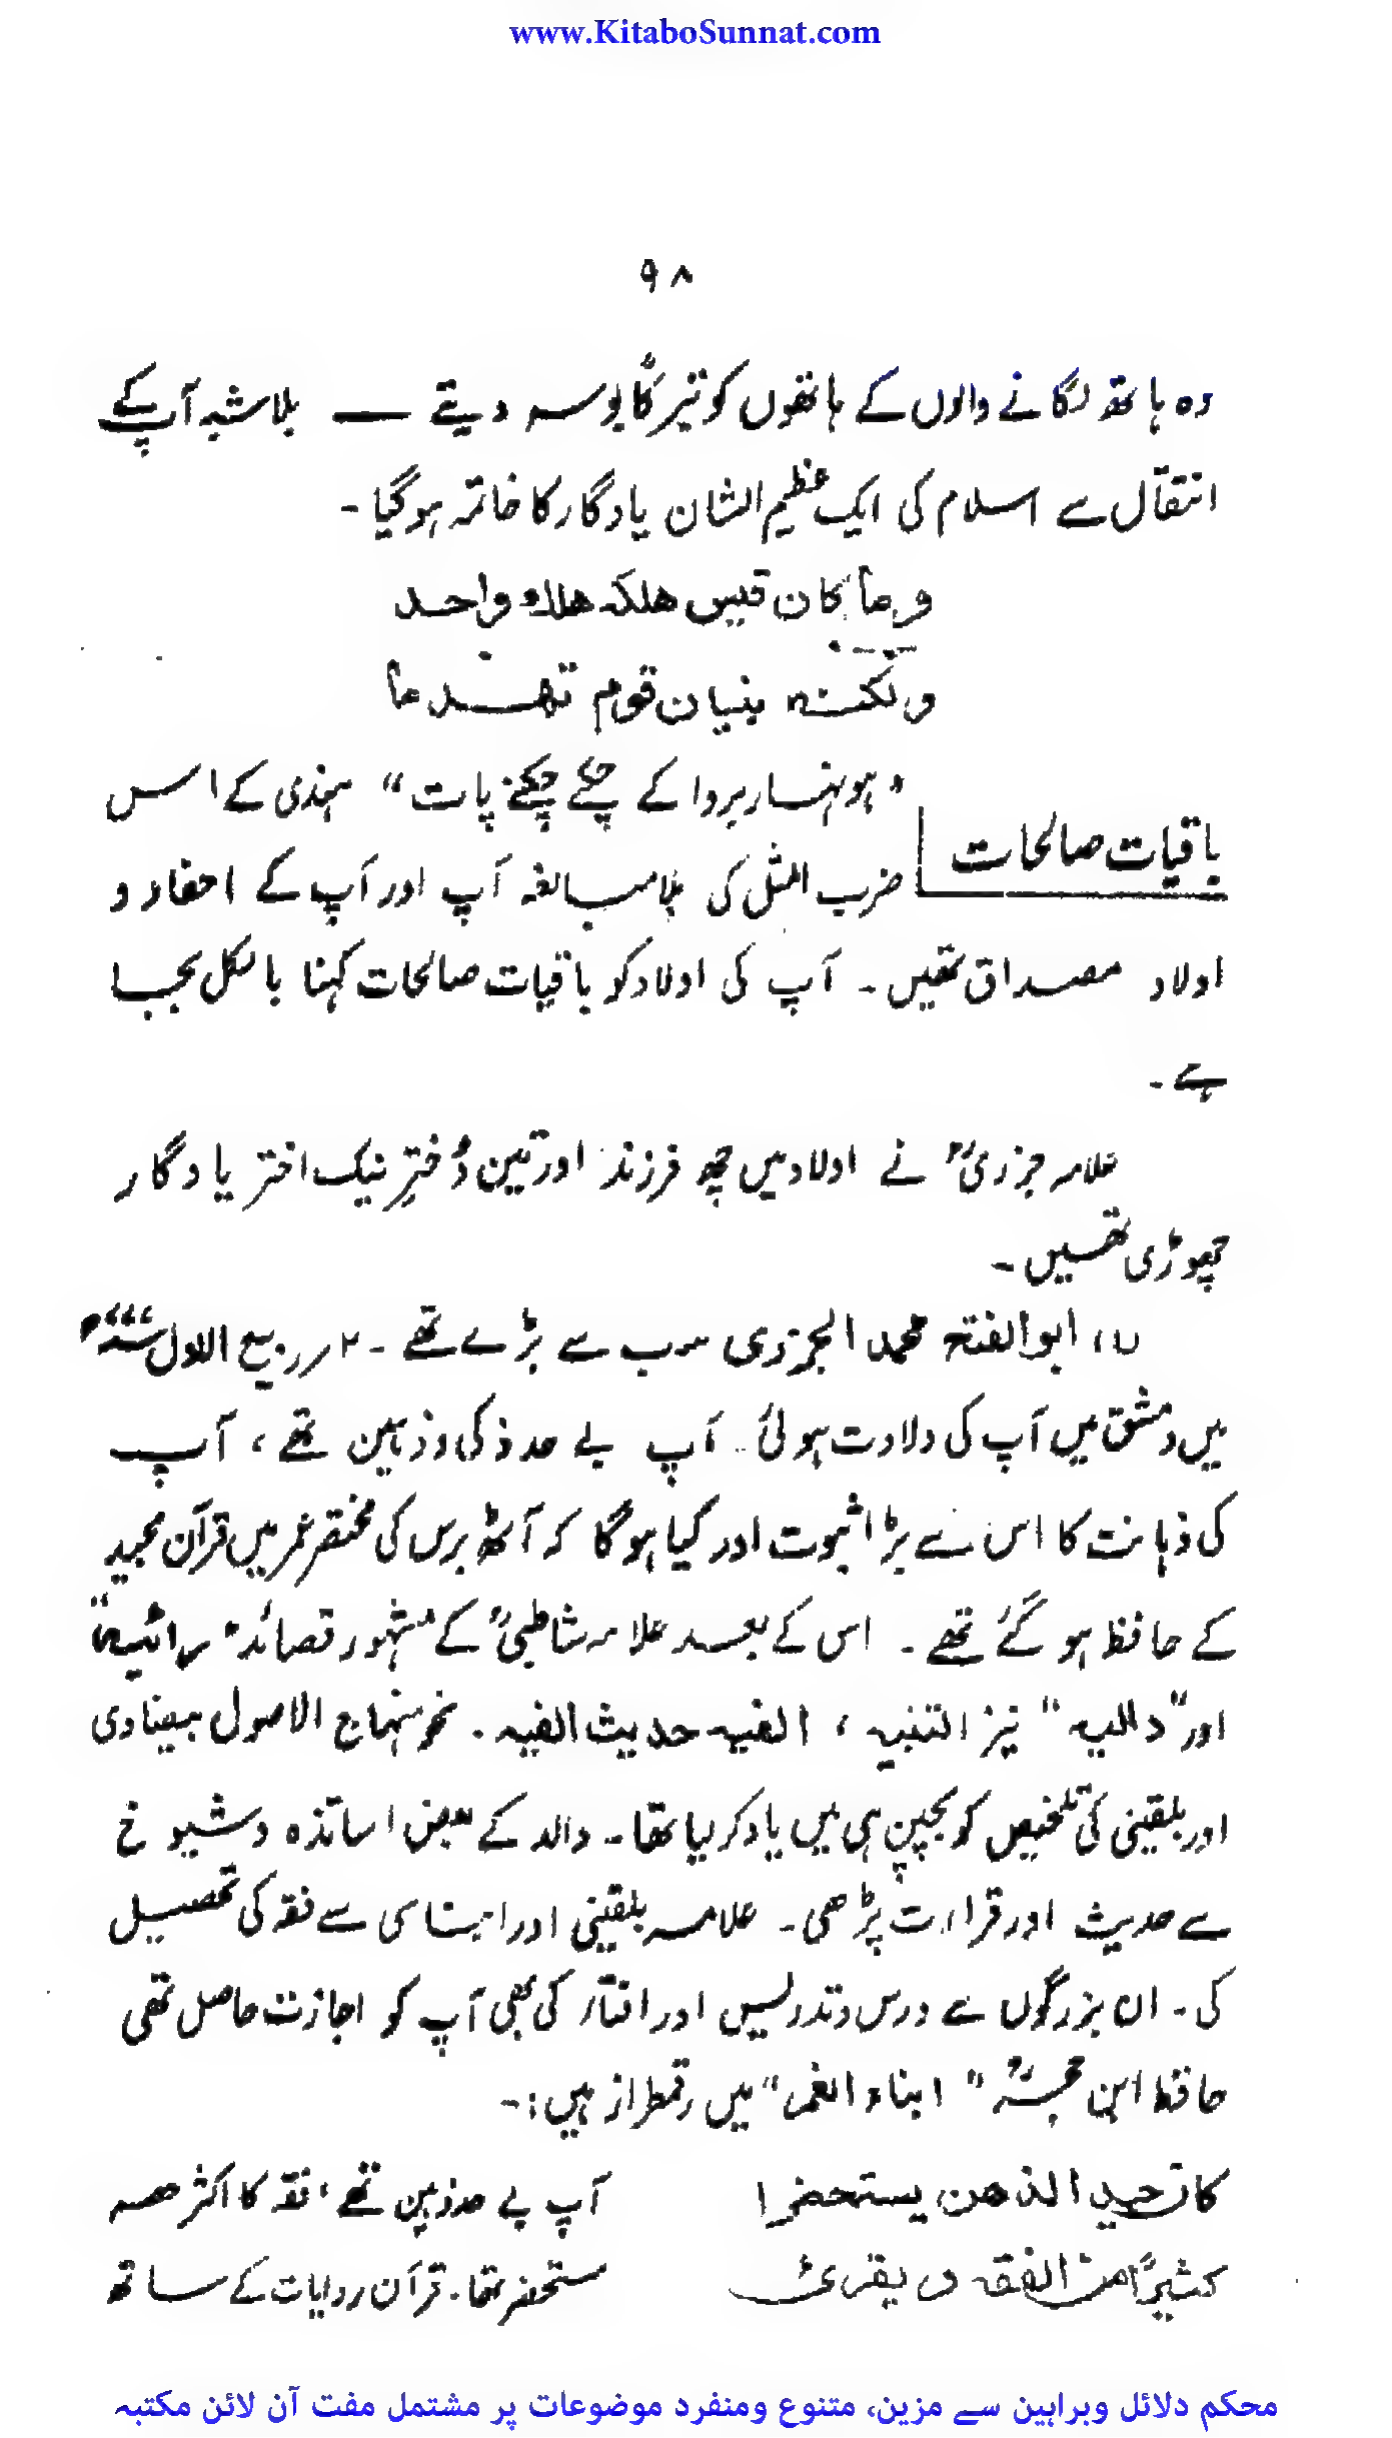 www.KitaboSunnat.com
۹۸
وہ ہاتھ لگانے والوں کے ہاتھوں کو تبرکًا بوسہ دیتے — بلاشبہ آپ کے
انتقال سے اسلام کی ایک عظیم الشان یادگار کا خاتمہ ہو گیا۔
وما کان قیس ھلکہ ھلک واحد
ولکنہ بنیان قوم تھدما
باقیات صالحات
"ہونہار بروا کے چکنے چکنے پات" ہندی کے اس
ضرب المثل کی بلا مبالغہ آپ اور آپ کے احفاد و
اولاد مصداق تھیں۔ آپ کی اولاد کو باقیات صالحات کہنا بالکل بجا
ہے۔
علامہ جزریؒ نے اولاد میں چھ فرزند اور تین دُخترِ نیک اختر یادگار
چھوڑی تھیں۔
(۱) ابوالفتح محمد الجزری سب سے بڑے تھے۔ ۲ر ربیع الاول
میں دمشق میں آپ کی ولادت ہوئی۔ آپ بے حد ذکی و ذہین تھے، آپ
کی ذہانت کا اس سے بڑا ثبوت اور کیا ہوگا کہ آٹھ برس کی مختصر عمر میں قرآن مجید
کے حافظ ہو گئے تھے۔ اس کے بعد علامہ شاطبیؒ کے مشہور قصائد "رائیہ"
اور "دالیہ" نیز التنبیہ، الفیہ حدیث الفیہ۔ نحو منہاج الاصول بیضاوی
اور بلقینی کی تلخیص کو بچپن ہی میں یاد کر لیا تھا۔ والد کے بعض اساتذہ و شیوخ
سے حدیث اور قراءت پڑھی۔ علامہ بلقینی اور ابناسی سے فقہ کی تحصیل
کی۔ ان بزرگوں سے درس و تدریس اور افتاء کی بھی آپ کو اجازت حاصل تھی
حافظ ابن حجرؒ "ابناء الغمر" میں رقمطراز ہیں:۔
کان جید الذھن یستحضر
کثیرًا من الفقہ و یقرئ
آپ بے حد ذہین تھے، فقہ کا اکثر حصہ
مستحضر تھا۔ قرآن روایات کے ساتھ
محکم دلائل وبراہین سے مزین، متنوع ومنفرد موضوعات پر مشتمل مفت آن لائن مکتبہ